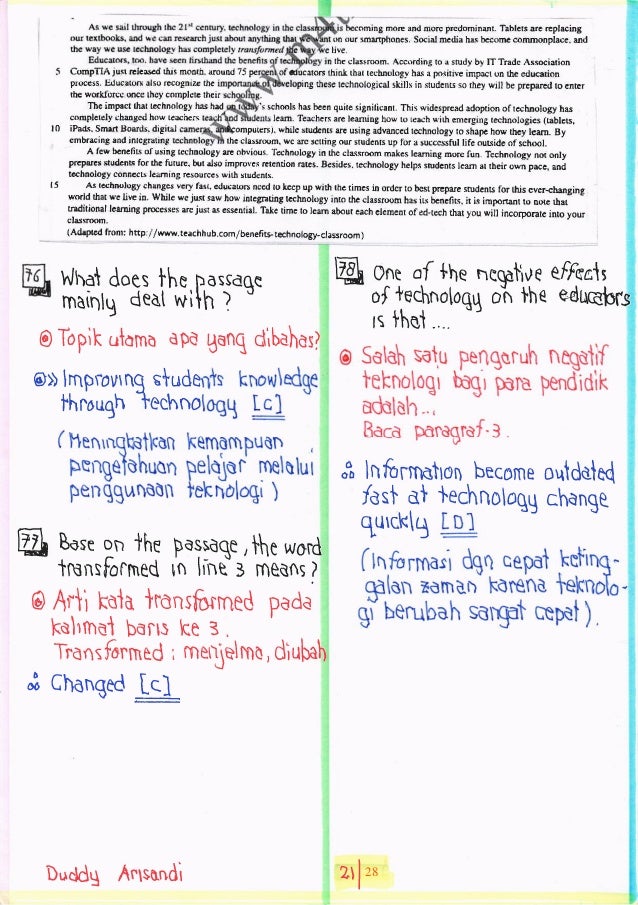 As we sail through the 21st century, technology in the classroom is becoming more and more predominant. Tablets are replacing
our textbooks, and we can research just about anything that we want on our smartphones. Social media has become commonplace, and
the way we use technology has completely transformed the way we live.
Educators, too, have seen firsthand the benefits of technology in the classroom. According to a study by IT Trade Association
5 CompTIA just released this month, around 75 percent of educators think that technology has a positive impact on the education
process. Educators also recognize the importance of developing these technological skills in students so they will be prepared to enter
the workforce once they complete their schooling.
The impact that technology has had on today's schools has been quite significant. This widespread adoption of technology has
completely changed how teachers teach and students learn. Teachers are learning how to teach with emerging technologies (tablets,
10 iPads, Smart Boards, digital cameras, and computers), while students are using advanced technology to shape how they learn. By
embracing and integrating technology in the classroom, we are setting our students up for a successful life outside of school.
A few benefits of using technology are obvious. Technology in the classroom makes learning more fun. Technology not only
prepares students for the future, but also improves retention rates. Besides, technology helps students learn at their own pace, and
technology connects learning resources with students.
15 As technology changes very fast, educators need to keep up with the times in order to best prepare students for this ever-changing
world that we live in. While we just saw how integrating technology into the classroom has its benefits, it is important to note that
traditional learning processes are just as essential. Take time to learn about each element of ed-tech that you will incorporate into your
classroom.
(Adapted from: http://www.teachhub.com/benefits-technology-classroom)
76 What does the passage
mainly deal with ?
Topik utama apa yang dibahas?
>> Improving students knowledge
through technology [c]
(Meningkatkan kemampuan
pengetahuan pelajar melalui
penggunaan teknologi )
77 Base on the passage, the word
transformed in line 3 means ?
Arti kata transformed pada
kalimat baris ke 3.
Transformed : menjelma, diubah
Changed [c]
78 One of the negative effects
of technology on the educators
is that ....
Salah satu pengaruh negatif
teknologi bagi para pendidik
adalah ...
Baca paragraf-3.
Information become outdated
fast at technology change
quickly [D]
(Informasi dgn cepat keting-
galan zaman karena teknolo-
gi berubah sangat cepat).
Duddy Arisandi
21 28